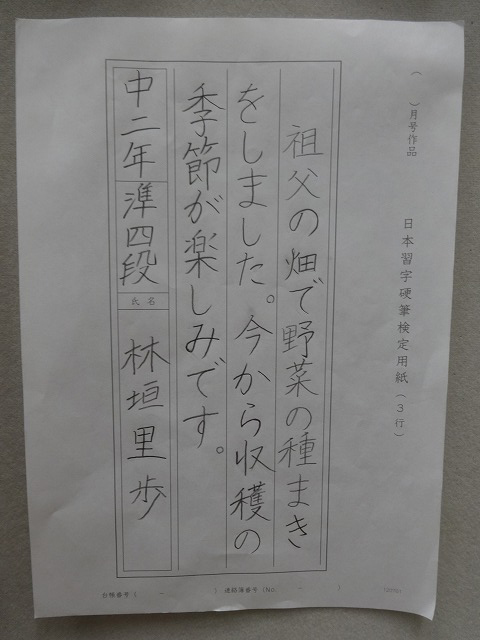 （　　）月号作品
日本習字硬筆検定用紙（３行）
祖父の畑で野菜の種まき
をしました。今から収穫の
季節が楽しみです。
中二年
準四段
氏名
林垣里歩
台帳番号（　　－　　）連絡簿番号（No.　　－　　）